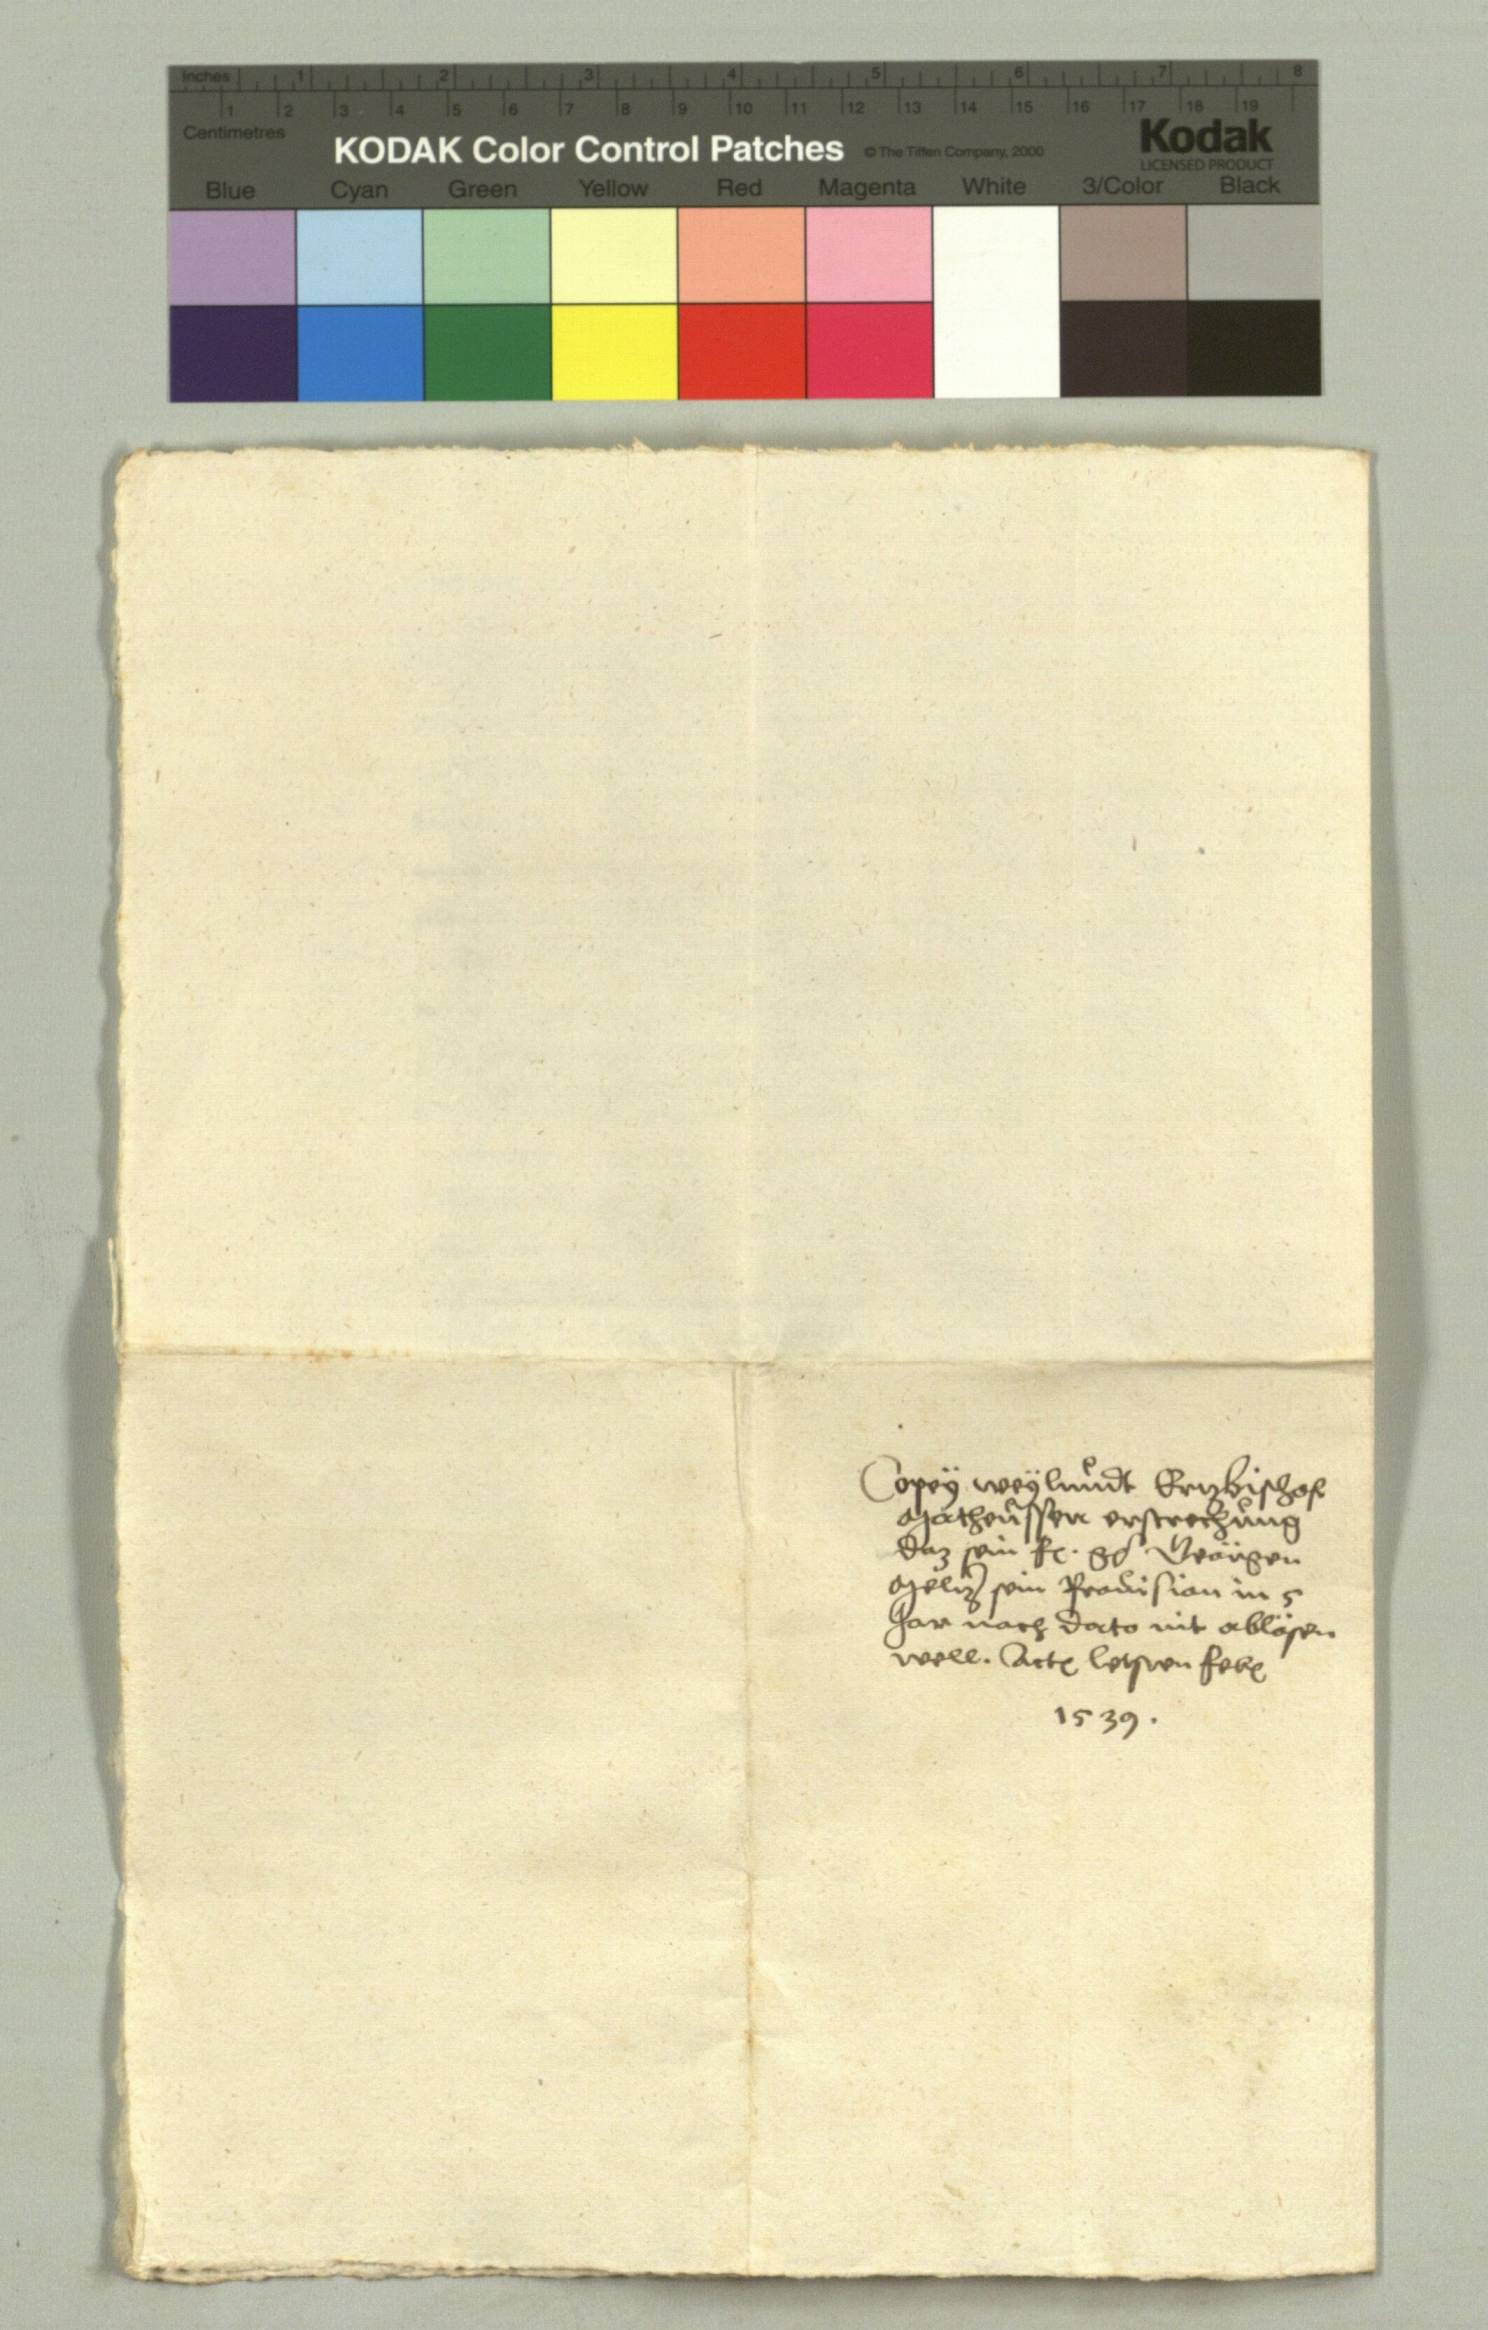 Inches 1 2 3 4 5 6 7 8
1 2 3 4 5 6 7 8 9 10 11 12 13 14 15 16 17 18 19
Centimetres
KODAK Color Control Patches © The Tiffen Company, 2000 Kodak
LICENSED PRODUCT
Blue Cyan Green Yellow Red Magenta White 3/Color Black
Copeÿ weÿlundt Ertzbischof
Matheussen erstreckung
daz sein fr. gd Geörgen
sein Provision in 5
Jar nach dato nit ablösen
well. Act letsten feb
1539.